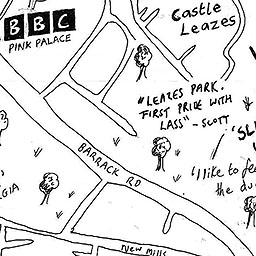 BBC
PINK PALACE
Castle
Leazes
"LEAZES PARK.
FIRST PRIDE WITH
LASS" - SCOTT
BARRACK RD
'I like to fe
the du
GIA
New Mills